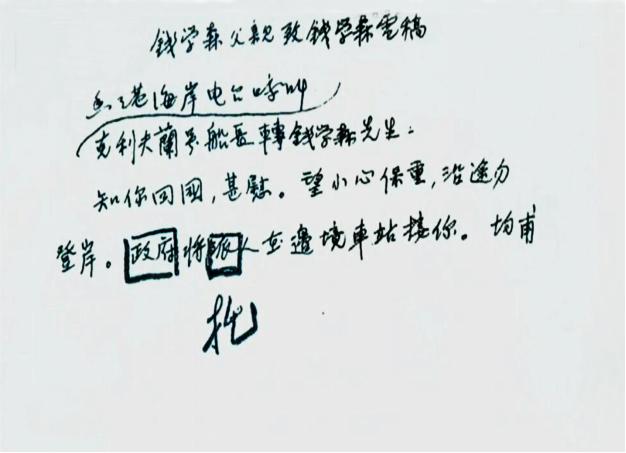 錢学森父親致錢学森電稿
香港海岸电台呼叫
克利夫蘭号船長轉錢学森先生：
知你回國，甚慰。望小心保重，沿途勿
登岸。政府將派人至邊境車站接你。均甫
托